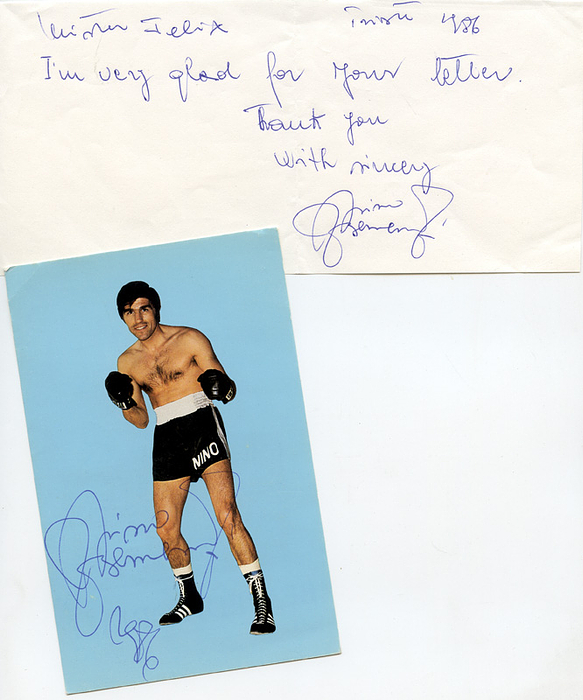 Mister Felix Trieste 1986
I'm very glad for your letter.
Thank you
With sincery
Nino
Benvenuti
NINO
Nino
Benvenuti
1986